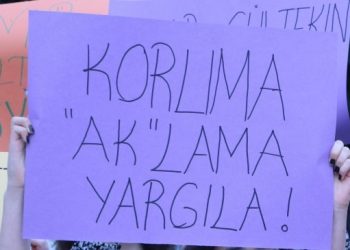 GÜLTEKİN
KORUMA
"AK"LAMA
YARGILA!